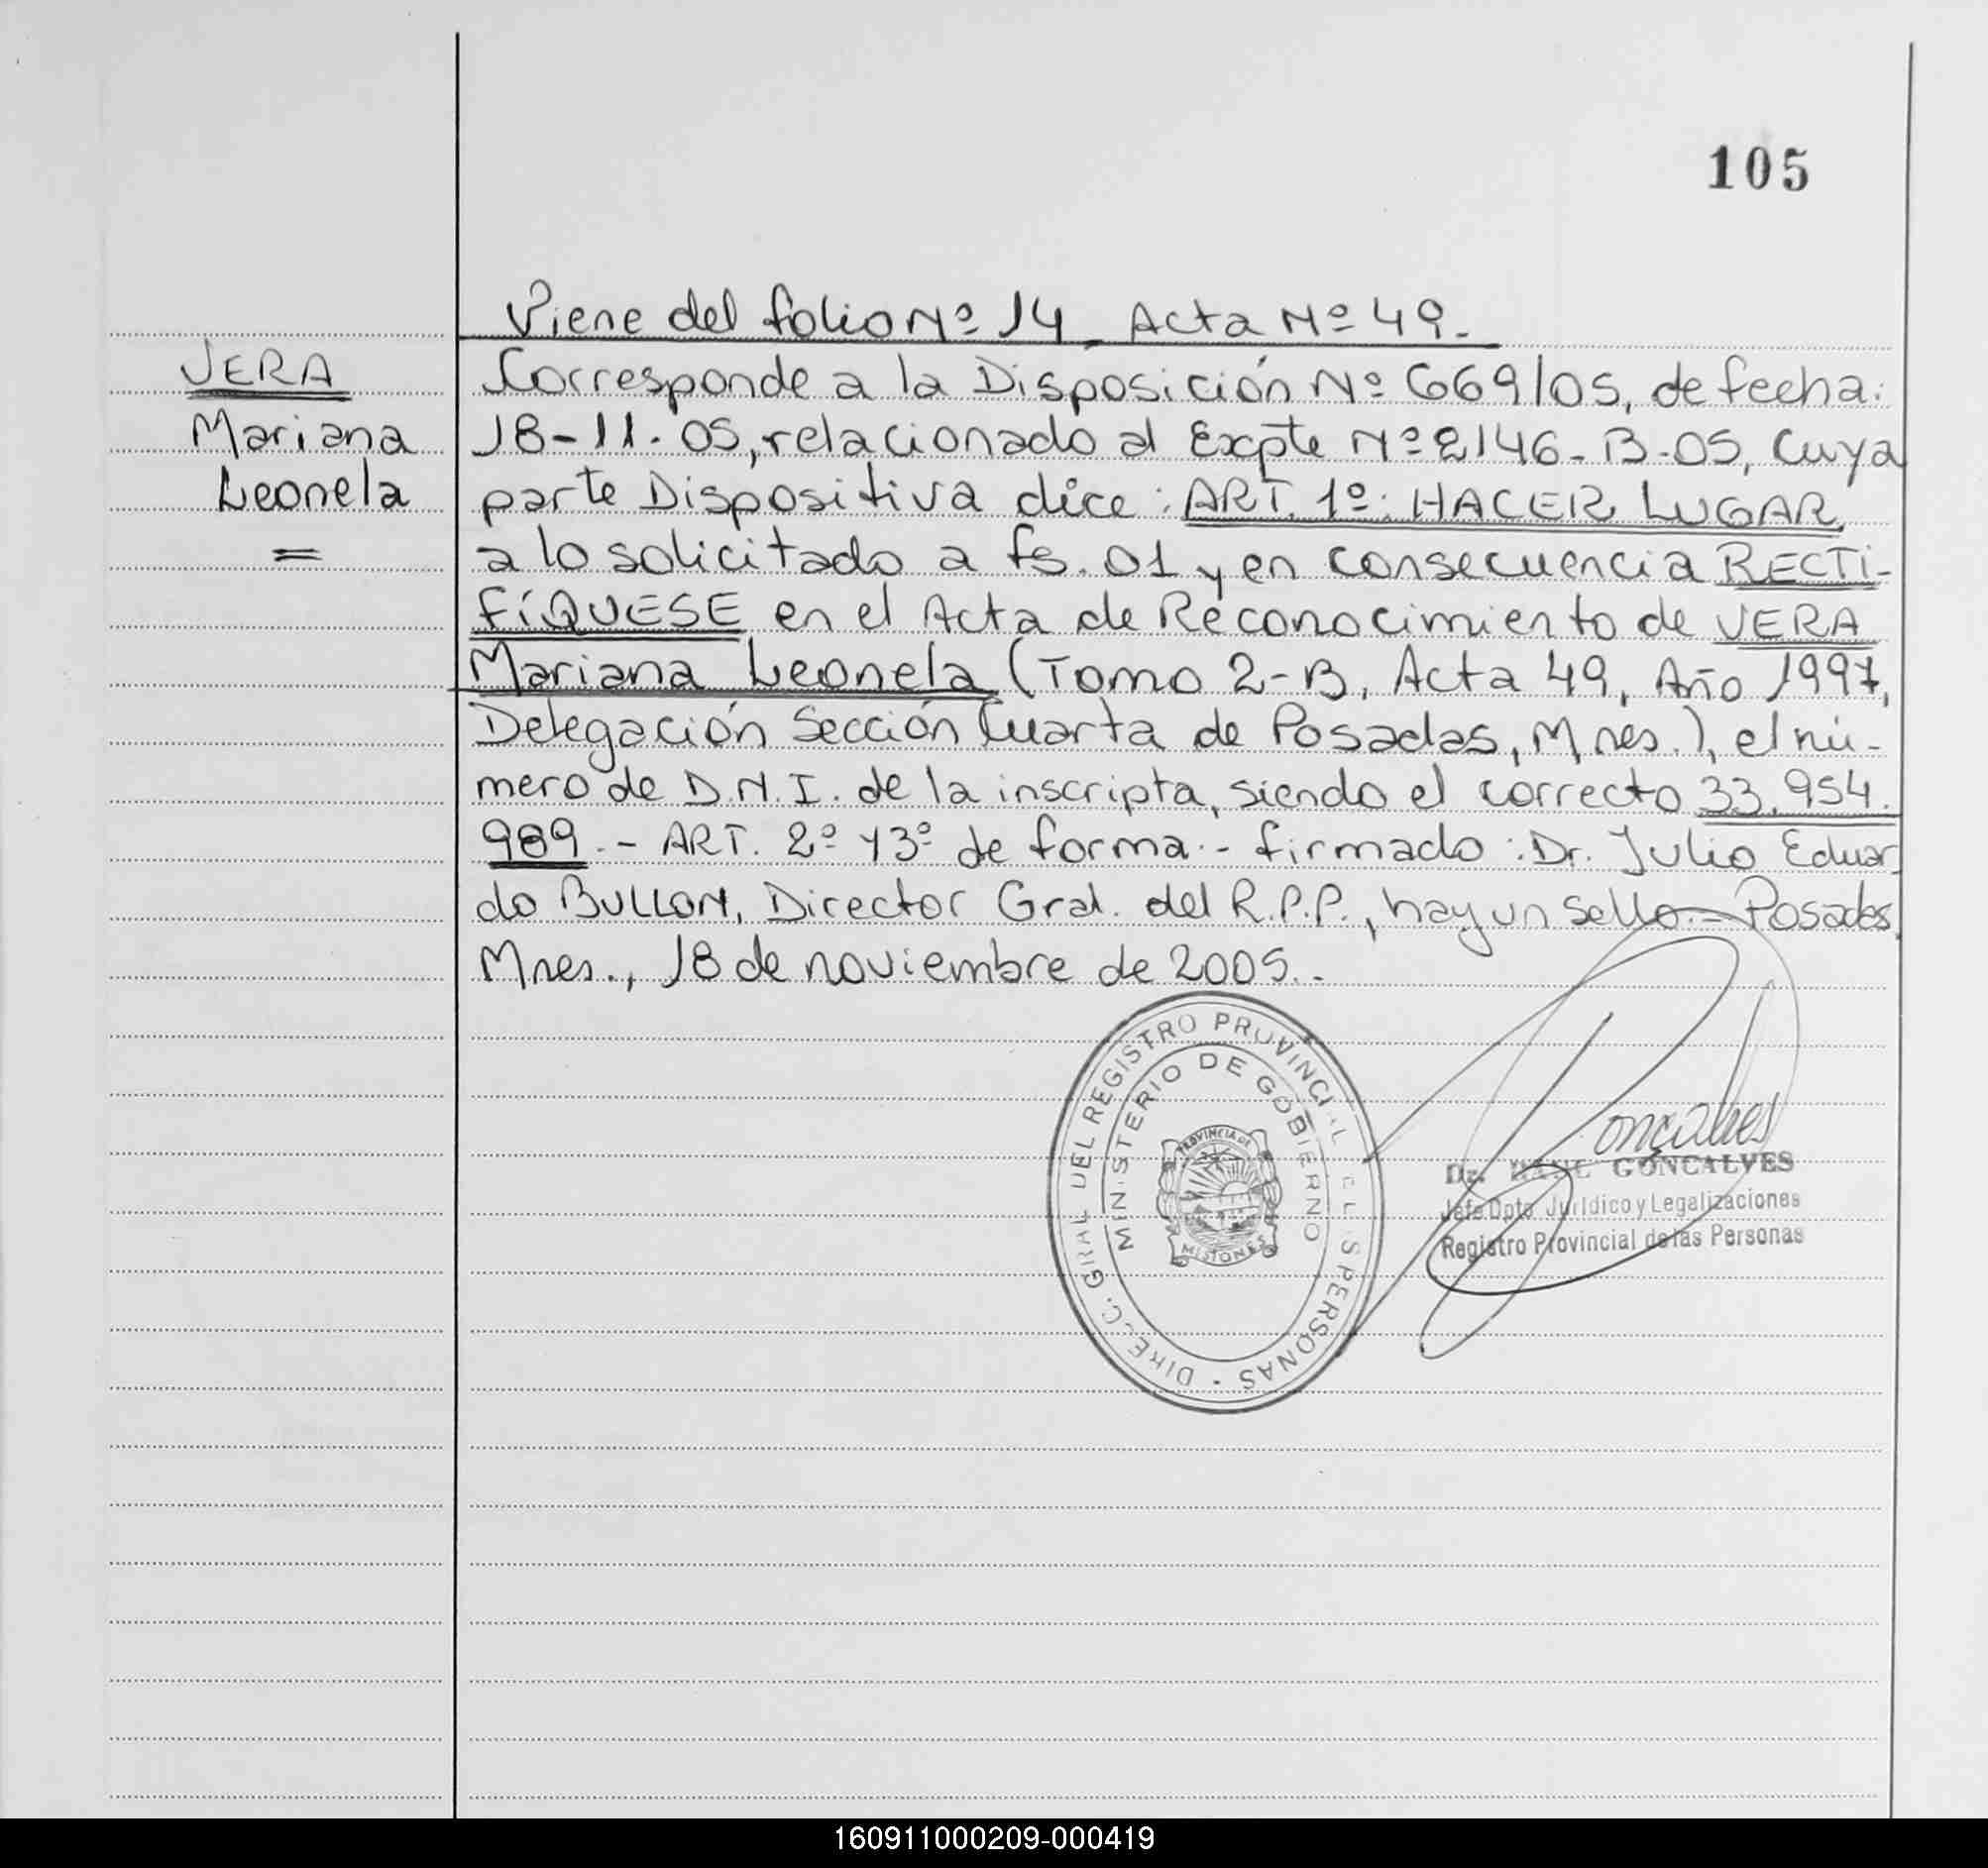 105
Viene del folio Nº 14 Acta Nº 49.-
VERA
Mariana
Leonela
=
Corresponde a la Disposición Nº 669/05, de fecha:
18-11-05, relacionado al Expte Nº 2146-B-05, Cuya
parte Dispositiva dice: ART. 1º: HACER LUGAR
a lo solicitado a fs. 01 y en consecuencia RECTI-
FÍQUESE en el Acta de Reconocimiento de VERA
Mariana Leonela (Tomo 2-B, Acta 49, Año 1997,
Delegación Sección Cuarta de Posadas, Mnes.), el nú-
mero de D.N.I. de la inscripta, siendo el correcto 33.954.
989.- ART. 2º y 3º de forma.- firmado: Dr. Julio Eduar
do BULLON, Director Gral. del R.P.P., hay un sello.- Posadas,
Mnes., 18 de noviembre de 2005.-
DIREC. GRAL DEL REGISTRO PROVINCIAL DE LAS PERSONAS
MINISTERIO DE GOBIERNO
PROVINCIA DE
MISIONES
Goncalves
Dr. GONCALVES
Jefe Dpto. Jurídico y Legalizaciones
Registro Provincial de las Personas
160911000209-000419